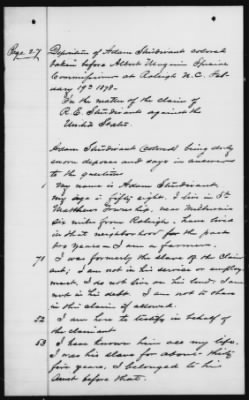 Page 27
Deposition of Adam Sturdivant colored
taken before Albert Magnin Special
Commissioner at Raleigh N.C. Feb-
ruary 19th 1878-
In the matter of the claim of
R. E. Sturdivant against the
United States.
Adam Sturdivant (Colored) being duly
sworn deposes and says in answer
to the questions
1 My name is Adam Sturdivant
my age is fifty eight. I live in St.
Matthews Township, near
six miles from Raleigh, I have lived
in that neighborhood for the past
two years - I am a farmer.
71 I was formerly the slave of the Claim
ant; I am not in his service or employ
ment, I do not live on his land; I am
not in his debt. I am not to share
in this claim if allowed.
52 I am here to testify in behalf of
the claimant
53 I have known him all my life.
I was his slave for about thirty
five years. I belonged to his
Aunt before that.